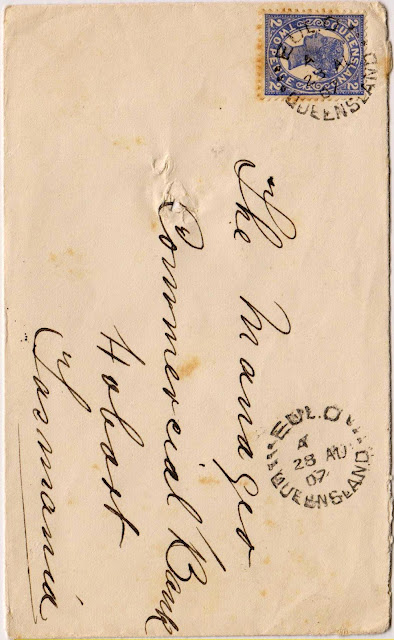 QUEENSLAND
TWO PENCE
2 2
2 2
QUEENSLAND
The Manager
Commercial Bank
Hobart
Tasmania
EULO
A
28 AU
07
QUEENSLAND